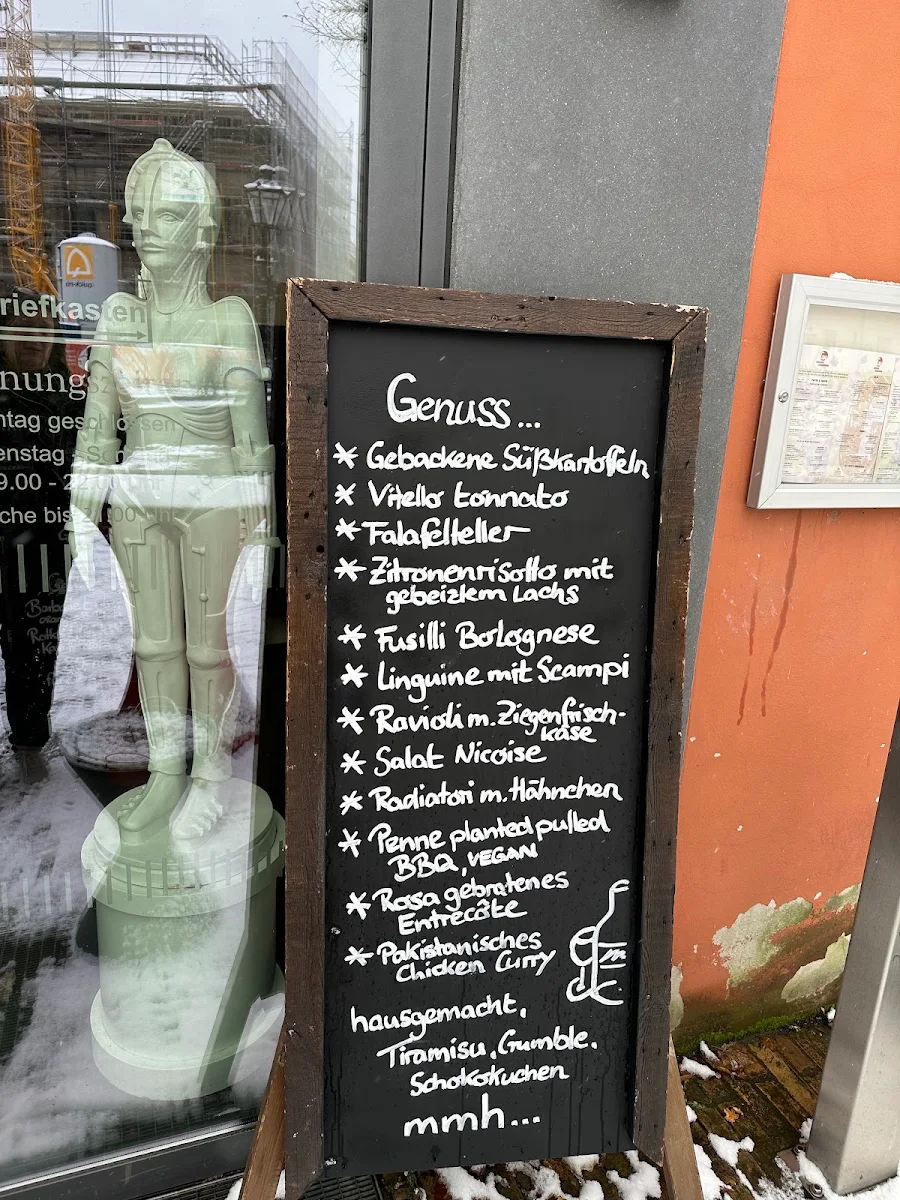 riefkasten
nungsz
ntag geschlossen
enstag - Sonntag
9.00 - 22.00 Uhr
che bis
Genuss...
* Gebackene Süßkartoffeln
* Vitello tonnato
* Falafelteller
* Zitronenrisotto mit
gebeiztem Lachs
* Fusilli Bolognese
* Linguine mit Scampi
* Ravioli m. Ziegenfrisch-
käse
* Salat Nicoise
* Radiatori m. Hähnchen
* Penne planted pulled
BBQ, VEGAN
* Rosa gebratenes
Entrecôte
* Pakistanisches
Chicken Curry
hausgemacht,
Tiramisu, Crumble,
Schokokuchen
mmh...